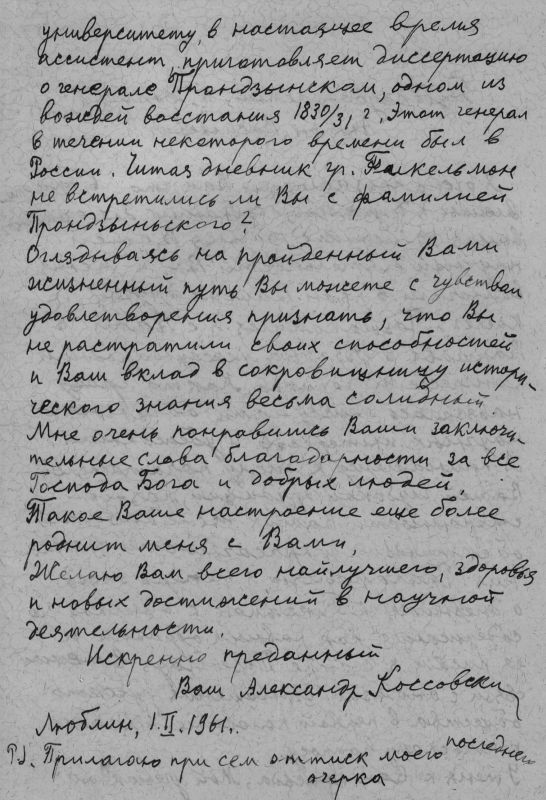 университету, в настоящее время
ассистент, приготовляет диссертацию
о генерале Прондзынскам, одном из
вождей восстания 1830/31 г. Этот генерал
в течении некоторого времени был в
России. Читая дневник гр. Фикельмон
не встретились ли Вы с фамилией
Прондзыньского?
Оглядываясь на пройденный Вами
жизненный путь Вы можете с чувством
удовлетворения признать, что Вы
не растратили своих способностей
и Ваш вклад в сокровищницу истори-
ческого знания весьма солидный.
Мне очень понравились Ваши заключи-
тельные слова благодарности за все
Господа Бога и добрых людей
Такое Ваше настроение еще более
роднит меня с Вами,
Желаю Вам всего найлучшего, здоровья
и новых достижений в научной
деятельности.
Искренно преданный
Ваш Александр Коссовски
Люблин, 1.II.1961.
PS. Прилагаю при сем оттиск моего последнего
очерка